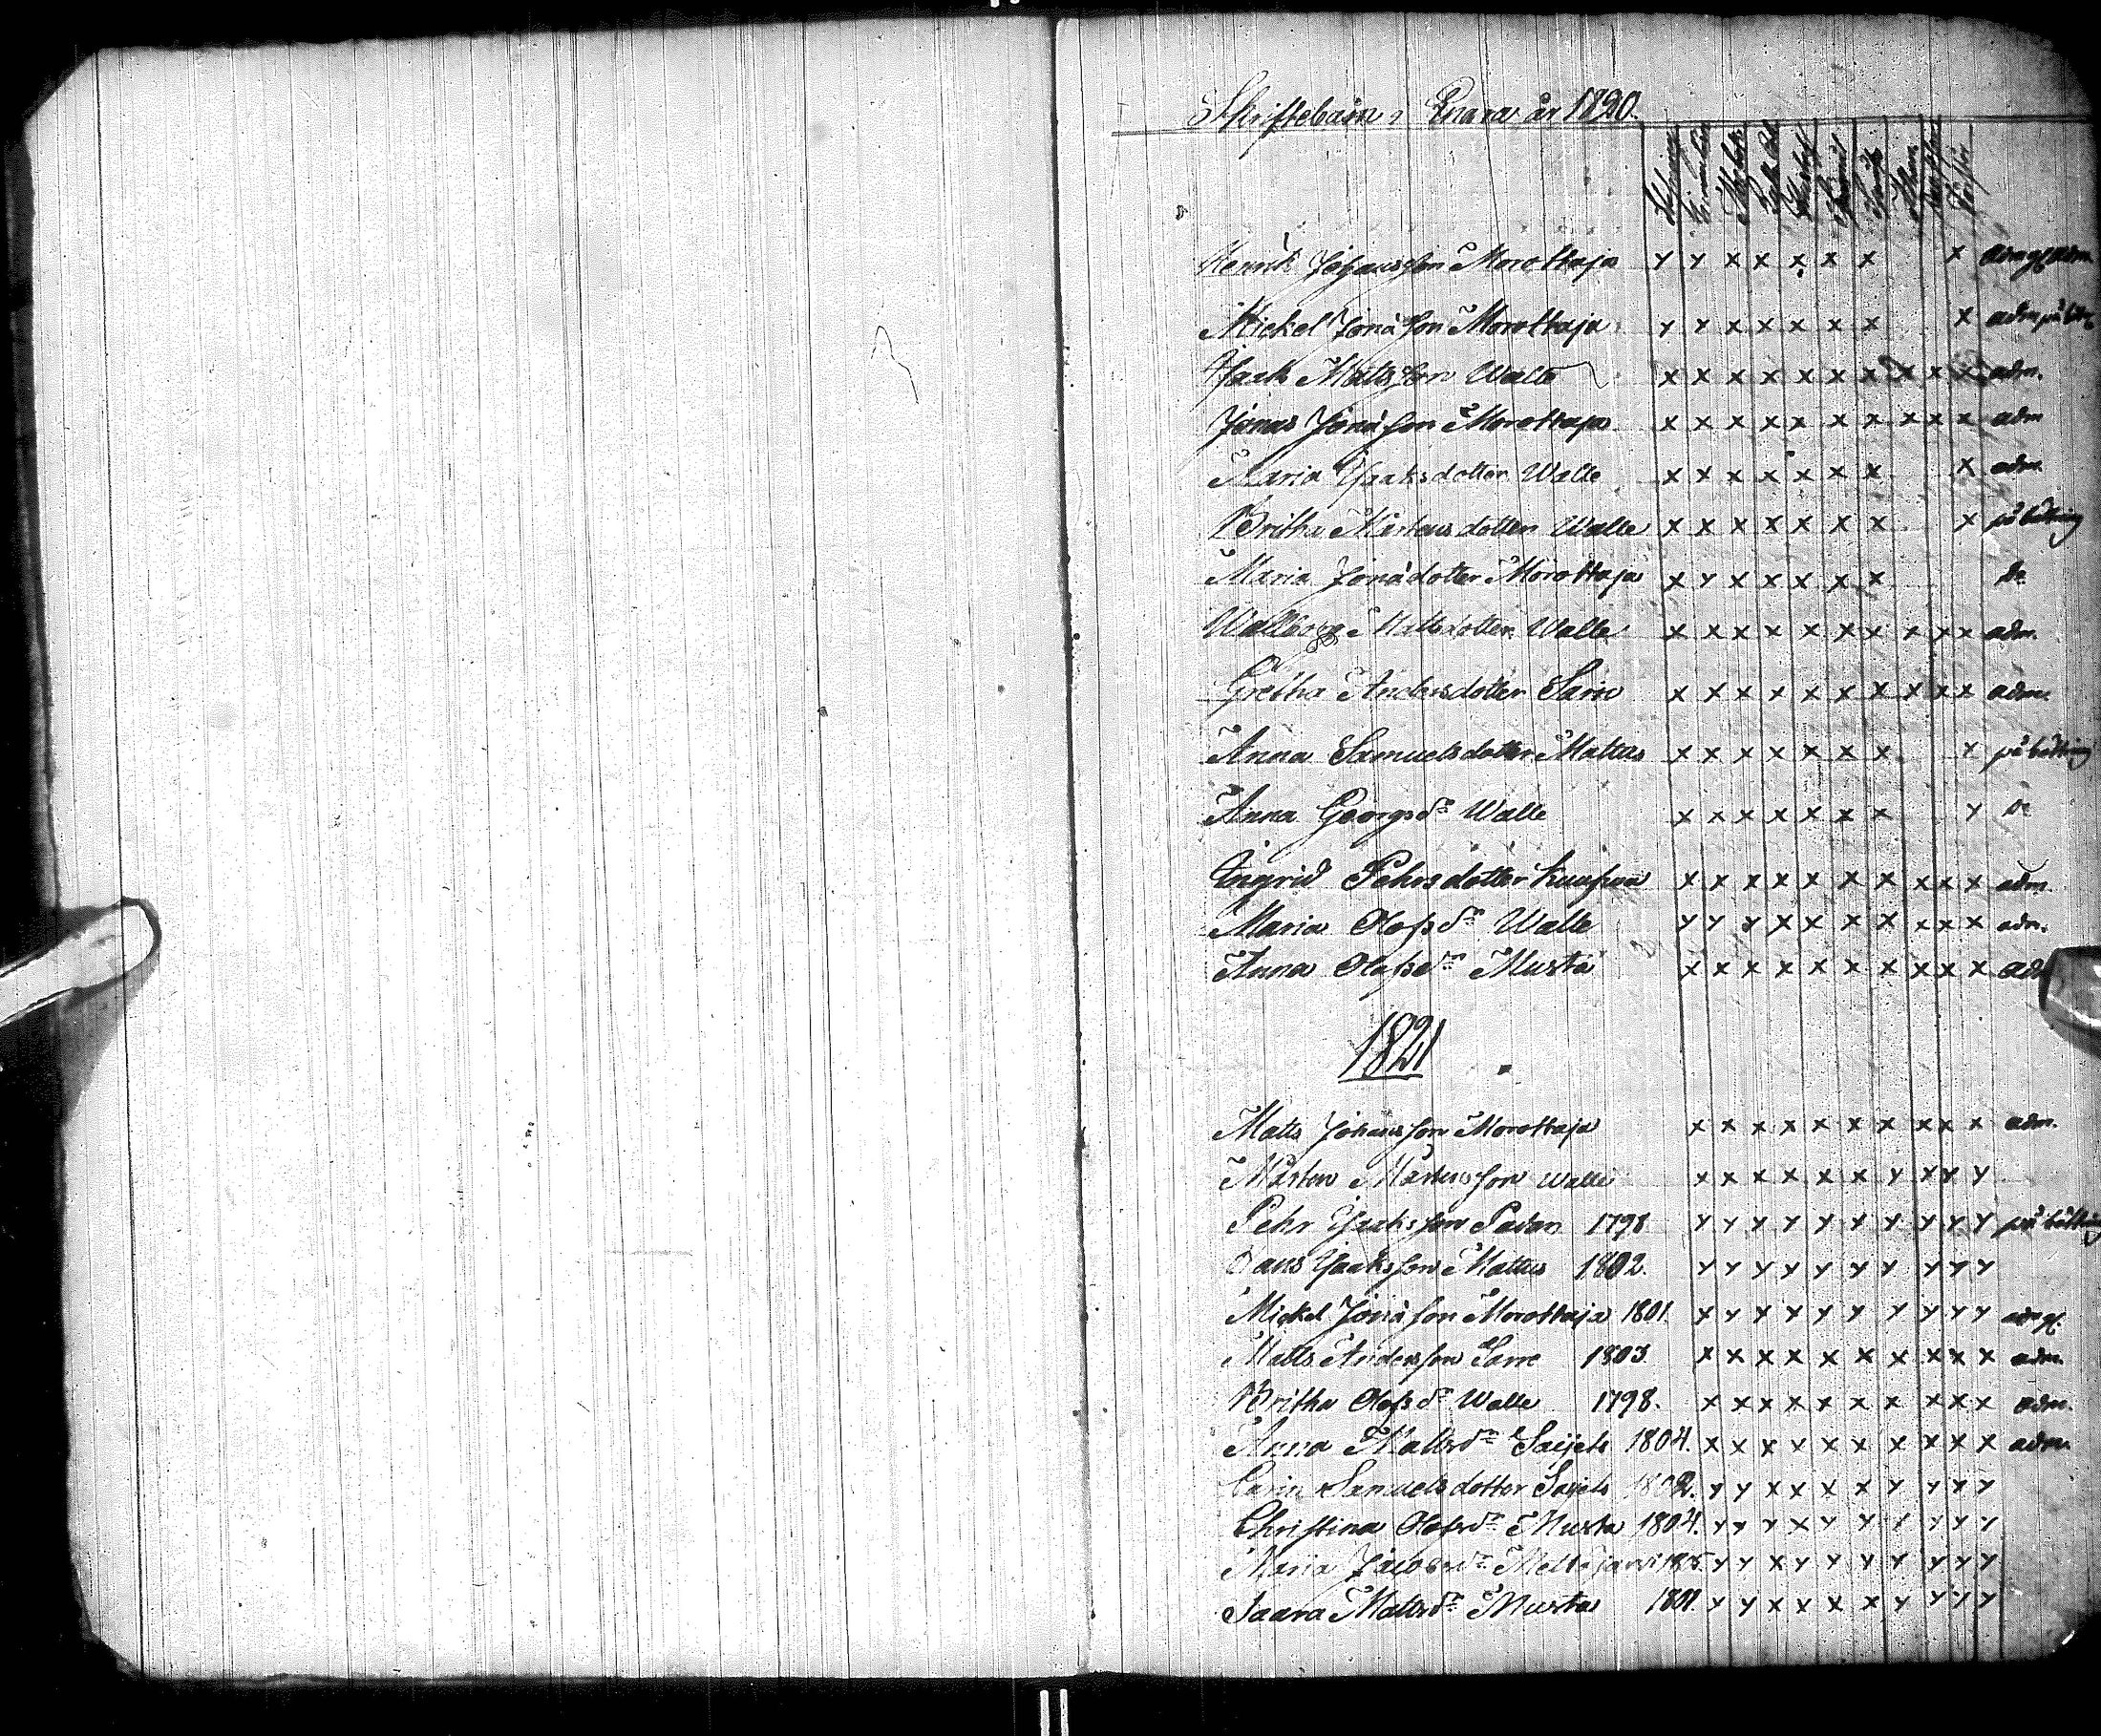 Skriftebarn i Enara år 1820.
Henrik Johansson Morottaja x x x x x x x x
Mickel Jonasson Morottaja x x x x x x x x adm på bättr
Isaak Mattsson Walle x x x x x x x x x x adm.
Jonas Jonasson Morottaja x x x x x x x x x x adm
Maria Isaaksdotter Walle x x x x x x x x adm.
Britha Mårtensdotter Walle x x x x x x x x på bättring
Maria Jonadotter Morottaja x x x x x x x do
Walborg Mattsdotter Walle x x x x x x x x x x adm.
Gretha Andersdotter Sarre x x x x x x x x x x adm.
Anna Samuelsdotter Mattus x x x x x x x x på bättring
Anna Georgsdr Walle x x x x x x x x do
Ingrid Pehrsdotter Kuufwa x x x x x x x x x x adm.
Maria Olofsdr Walle x x x x x x x x x x adm.
Anna Olofsdr Musta x x x x x x x x x x adm
1821
Matts Johansson Morottaja x x x x x x x x x x adm.
Mårten Mårtensson Walle x x x x x x x x x x
Pehr Isaksson Padar 1798 x x x x x x x x x x på bättring
Hans Isaaksson Mattus 1802. x x x x x x x x x x
Mickel Jonasson Morottaja 1801. x x x x x x x x x x
Matts Andersson Sarre 1803. x x x x x x x x x x adm.
Britha Olofsdr Walle 1798. x x x x x x x x x x adm.
Anna Mattsdr Saijets 1804. x x x x x x x x x x adm.
Carin Samuelsdotter Saijets 1802. x x x x x x x x x x
Christina Olofsdr Musta 1804. x x x x x x x x x x
Maria Jacobsdr 1805 x x x x x x x x x x
Saara Mattsdr Musta 1801. x x x x x x x x x x